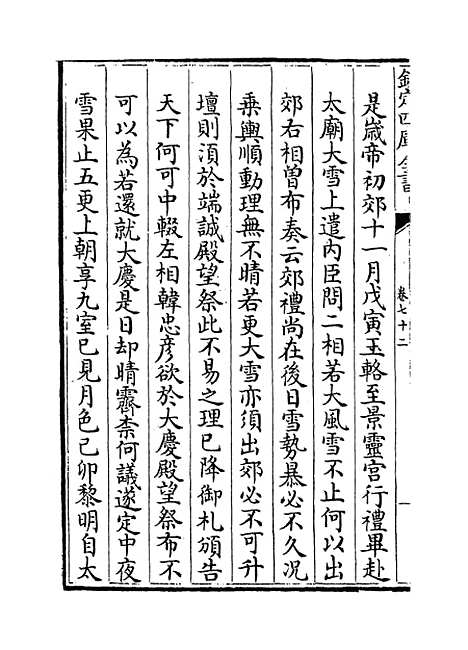 欽定四庫全書
卷七十二
是嵗帝初郊十一月戊寅玉輅至景靈宮行禮畢赴
太廟大雪上遣内臣問二相若大風雪不止何以出
郊右相曽布奏云郊禮尚在後日雪勢暴必不久況
乗輿順動理無不晴若更大雪亦須出郊必不可升
壇則湏於端誠殿望祭此不易之理已降御札頒告
天下何可中輟左相韓忠彦欲於大慶殿望祭布不
可以為若還就大慶是日却晴霽柰何議遂定中夜
雪果止五更上朝享九室已見月色己卯黎明自太